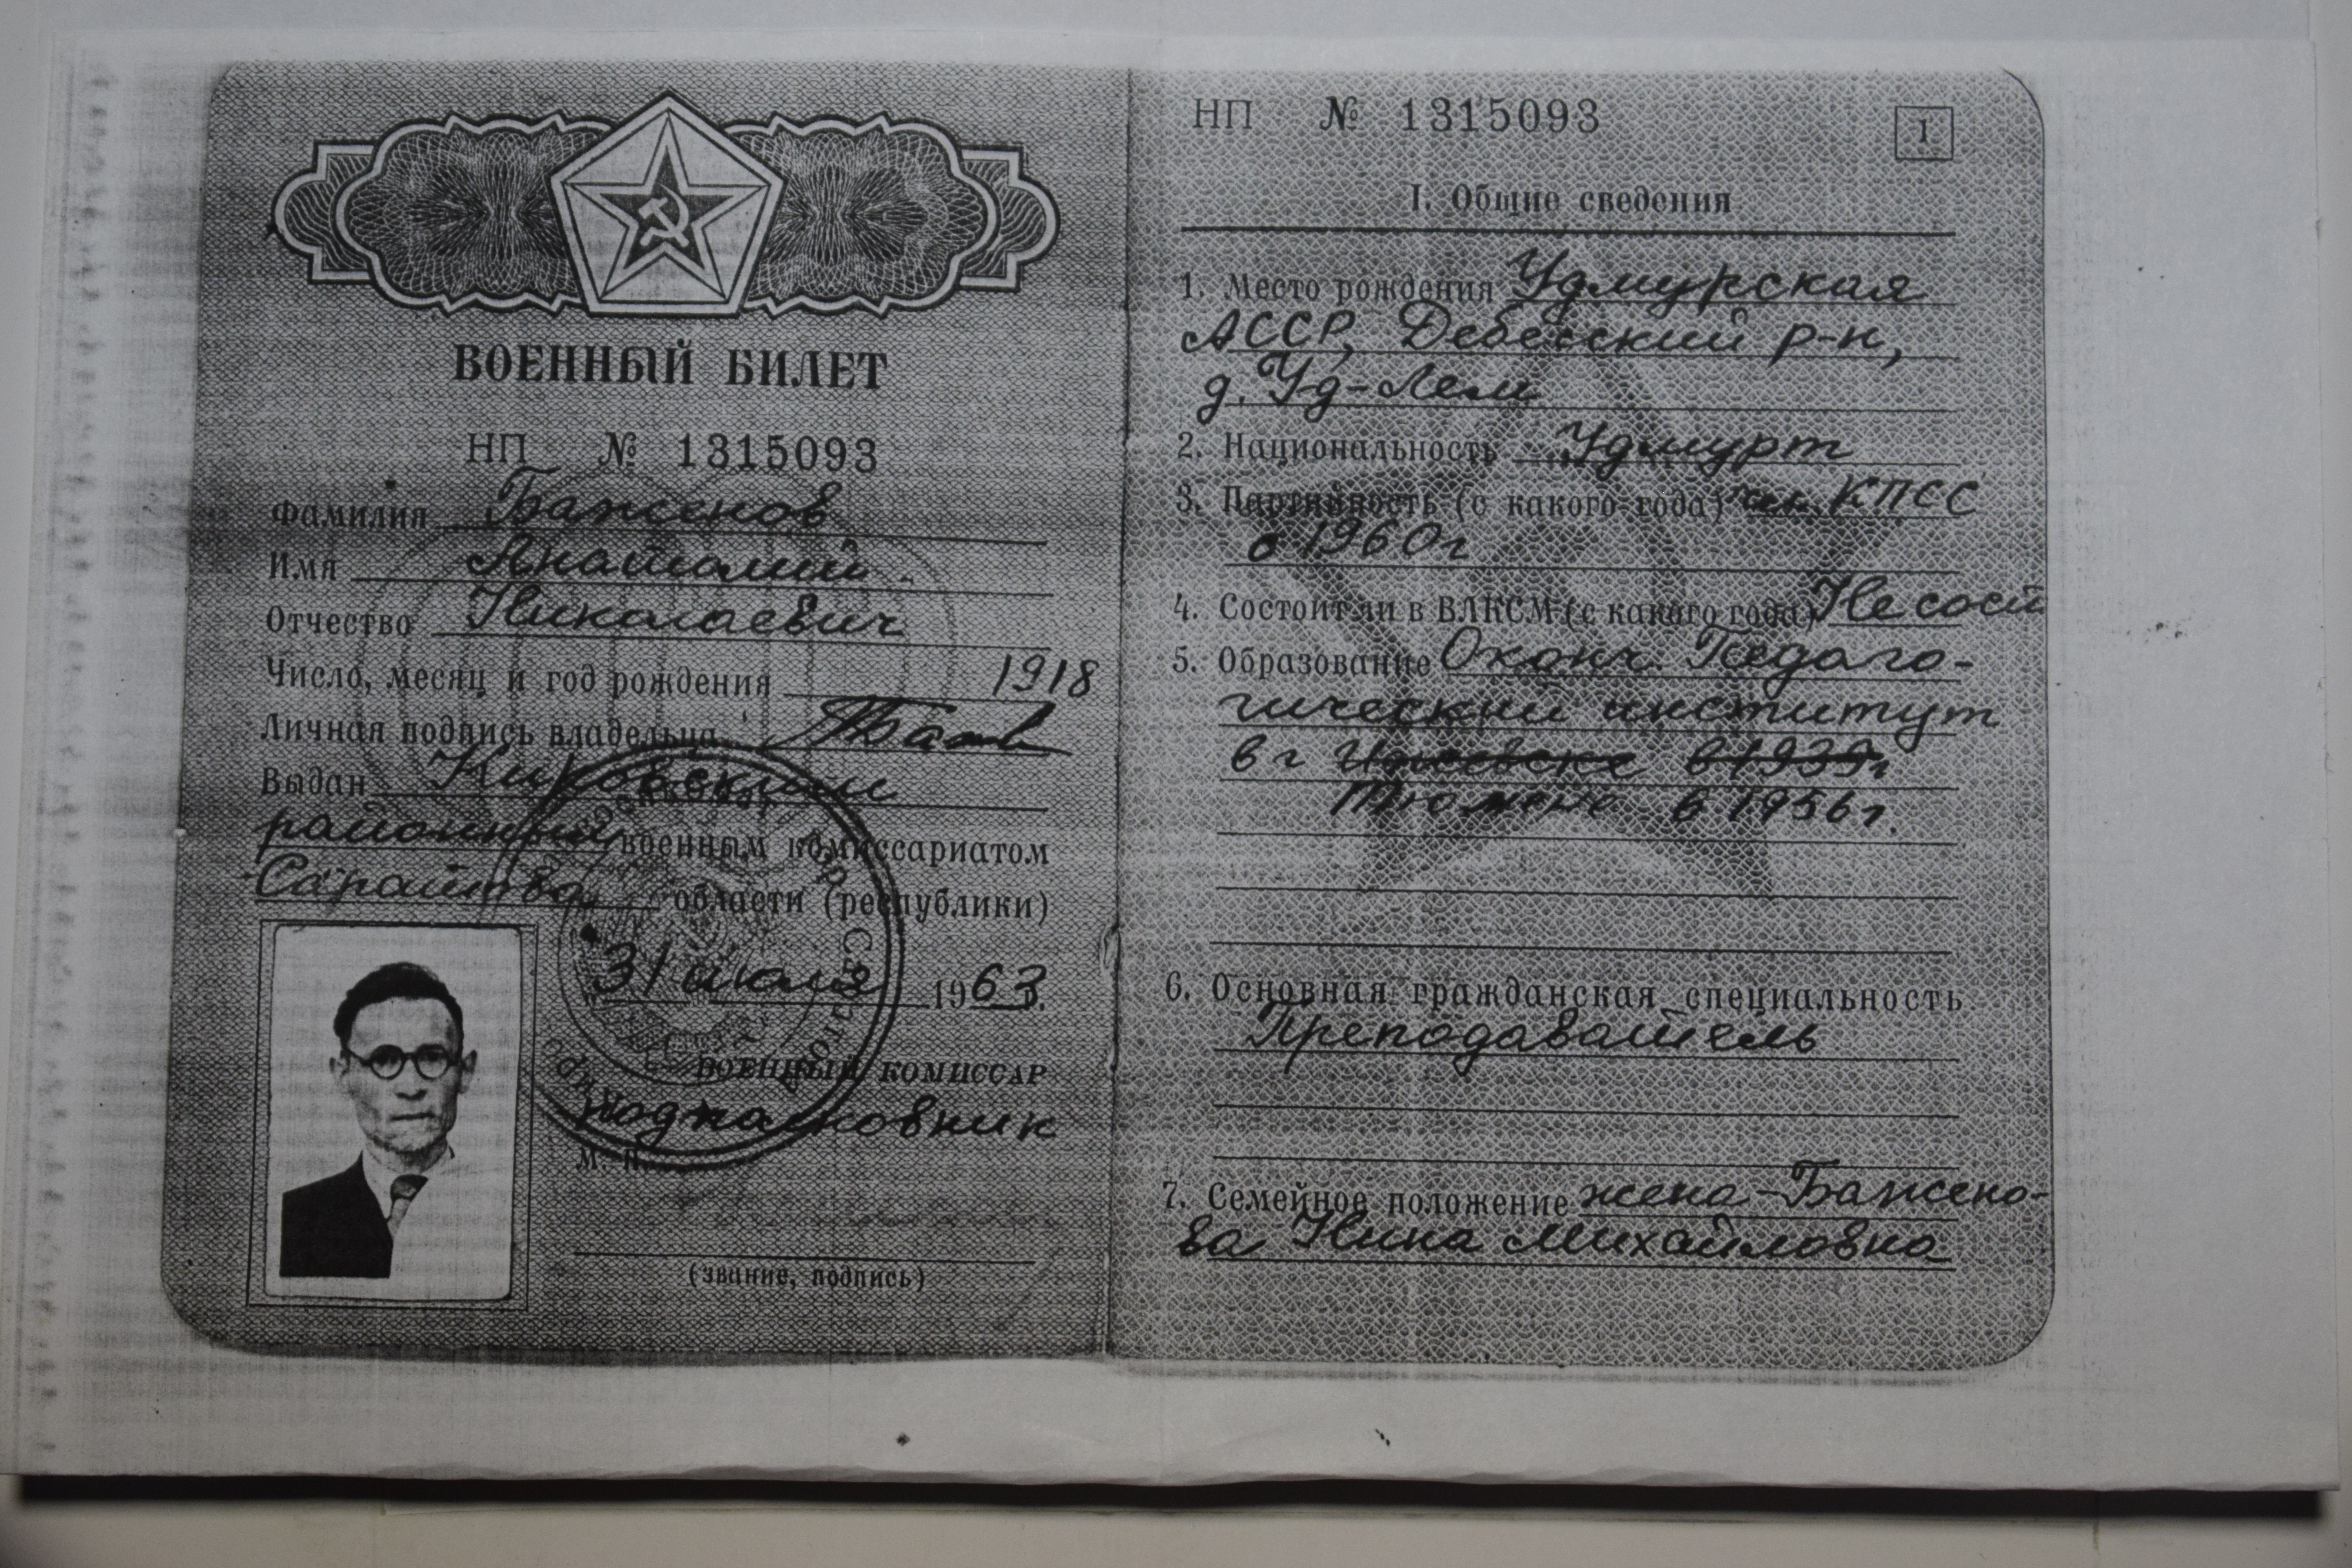 ВОЕННЫЙ БИЛЕТ
НП № 1315093
Фамилия Баженов
Имя Анатолий
Отчество Николаевич
Число, месяц и год рождения 1918
Личная подпись владельца
Выдан Кировским
районный военным комиссариатом
Саратова области (республики)
31 июля 1963.
ВОЕННЫЙ КОМИССАР
подполковник
М. П.
(звание, подпись)
НП № 1315093
1
I. Общие сведения
1. Место рождения Удмурская
АССР, Дебесский р-н,
д. Уд-Лем
2. Национальность Удмурт
3. Партийность (с какого года) чл. КПСС
с 1960г
4. Состоит ли в ВЛКСМ (с какого года) Не сост
5. Образование Оконч. Педаго-
гический институт
в г Ижевске в 1939г
Тюмень в 1956г.
6. Основная гражданская специальность
Преподаватель
7. Семейное положение жена - Баженo-
ва Нина Михайловна